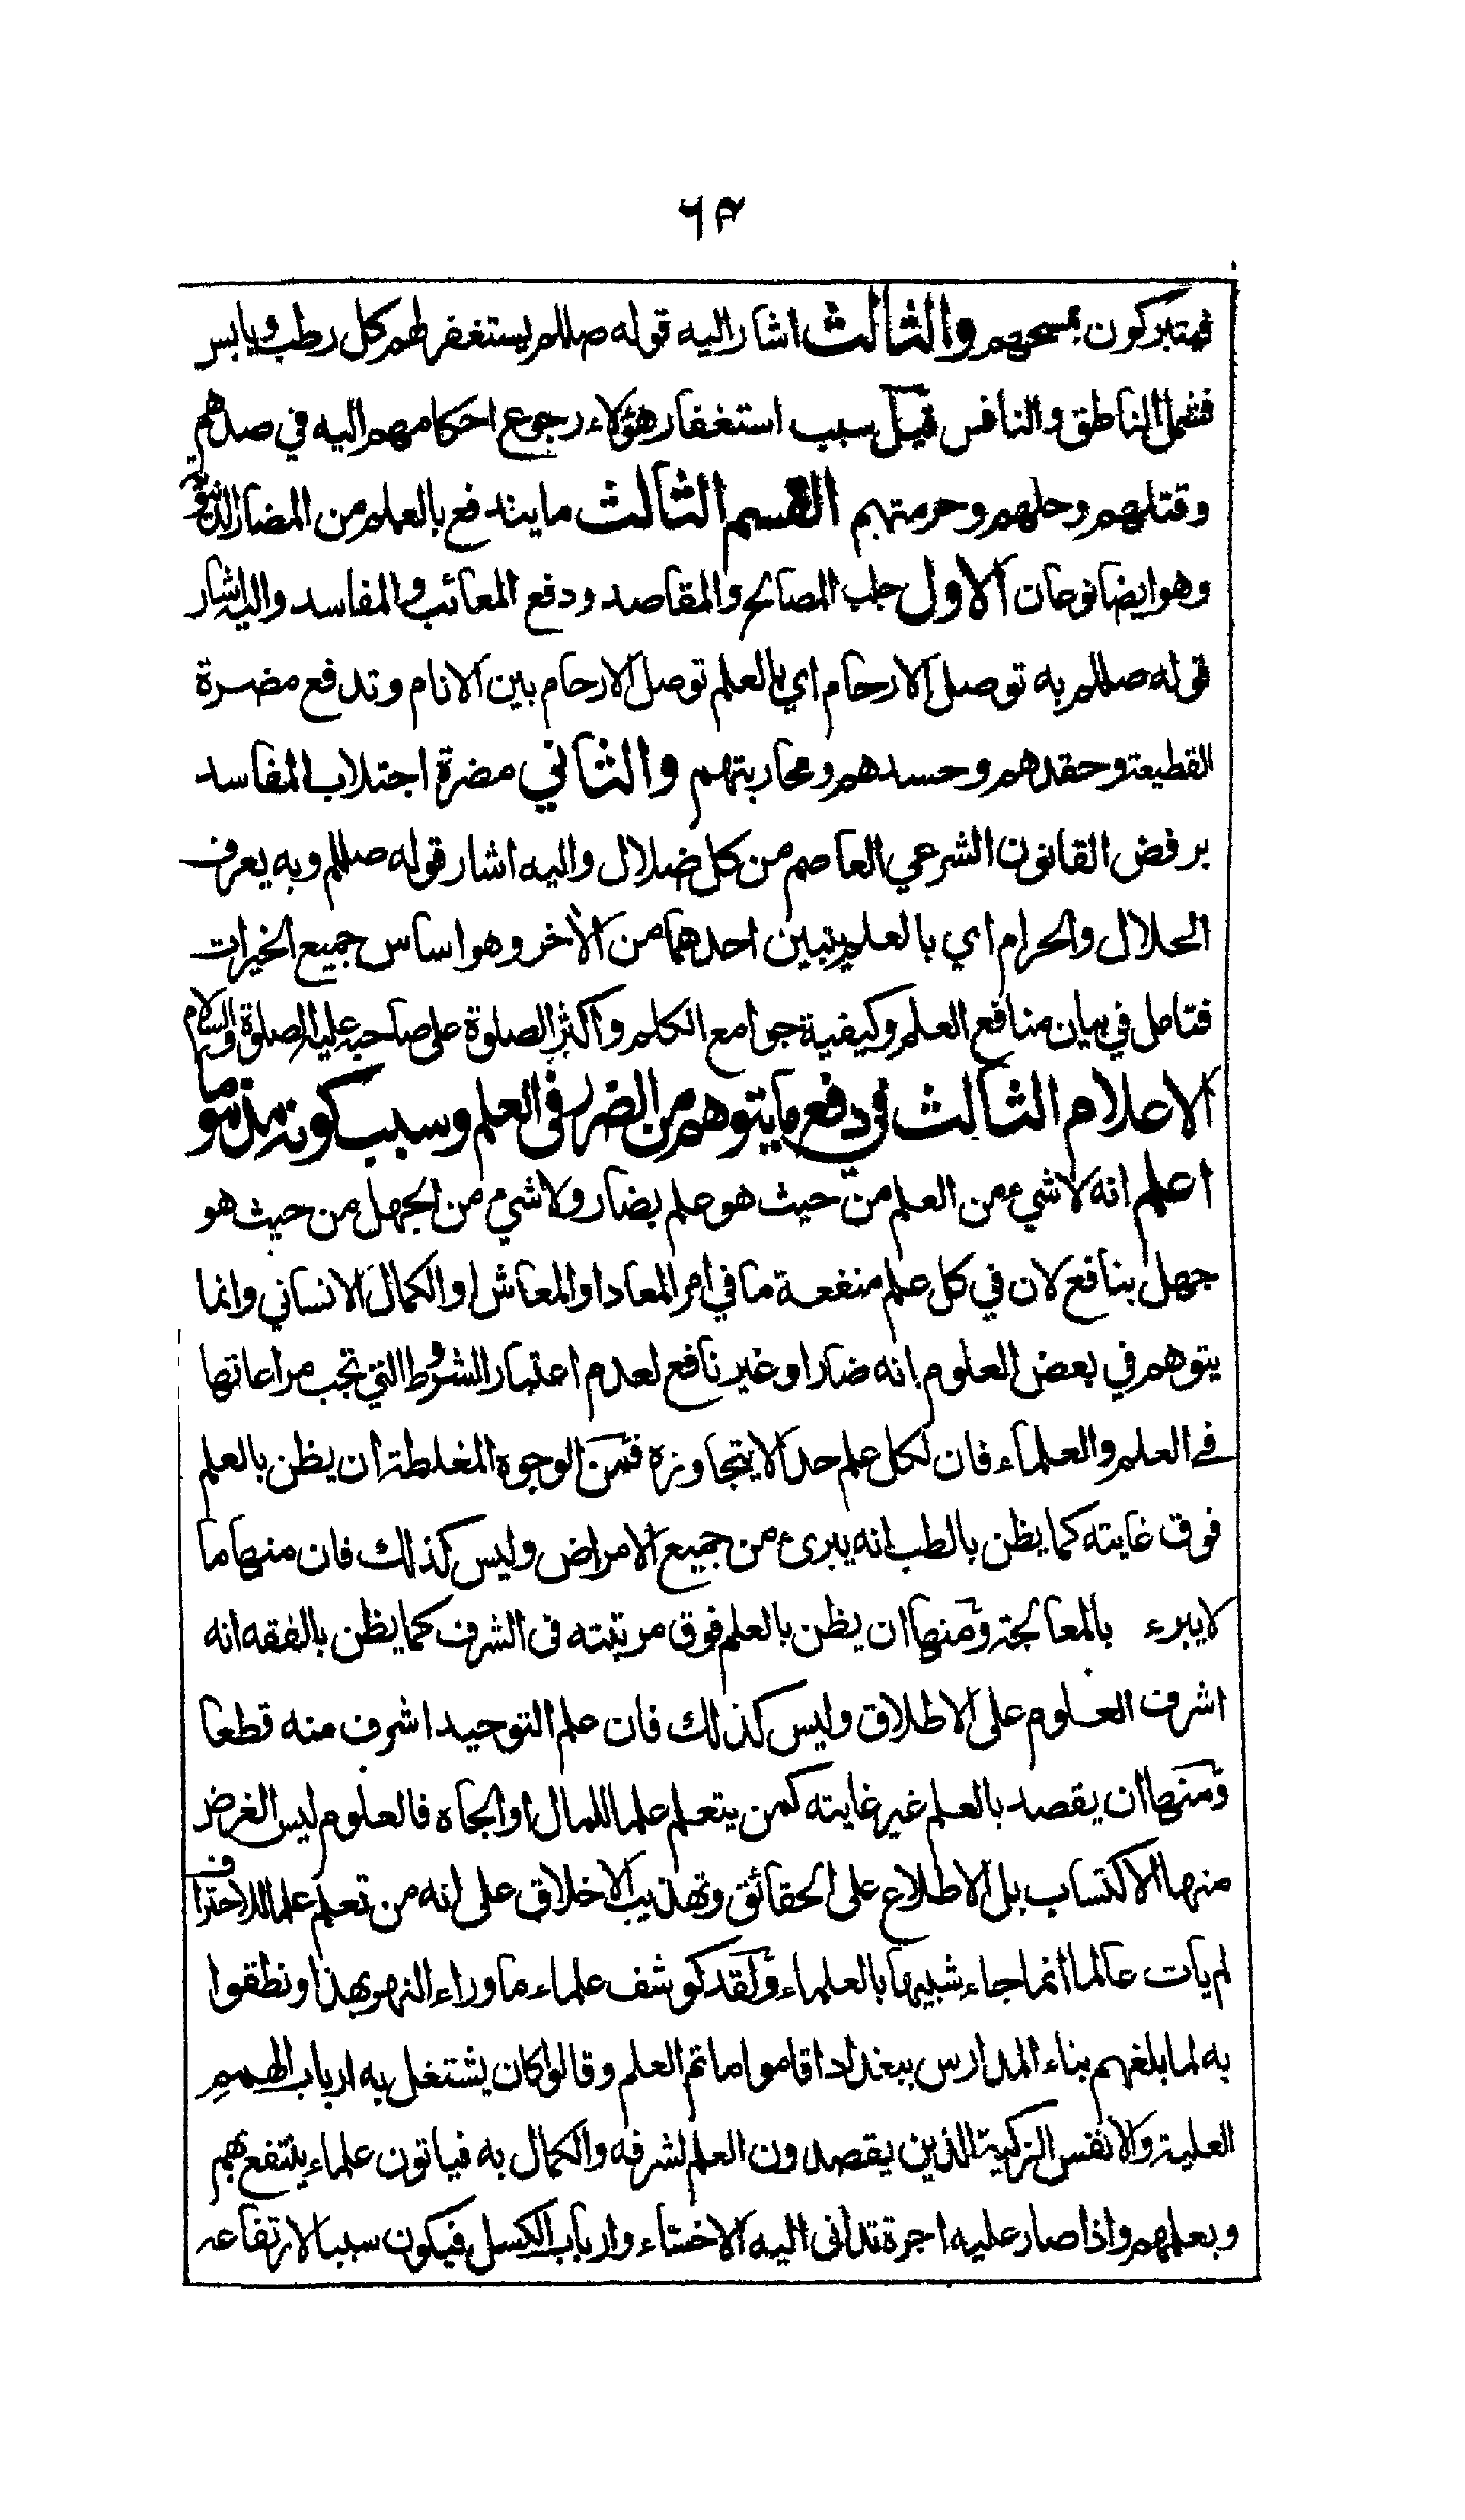 ٦٣
فيتبركون بمسحهم والثالث اشار اليه قوله صللم يستغفر لهم كل رطب ويابس
فشمل الناطق والنافس قيل سبب استغفار هؤلاء رجوع احكامهم اليه في صدهم
وقتلهم وحلهم وحرمتهم القسم الثالث ما يندفع بالعلم من المضار الدنيوية
وهو ايضا نوعان الاول جلب المصالح والمقاصد ودفع المعائب والمفاسد واليه اشار
قوله صللم به توصل الارحام اي بالعلم توصل الارحام بين الانام وتدفع مضرة
القطيعة وحقدهم وحسدهم ومحاربتهم والثاني مضرة اجتلاب المفاسد
برفض القانون الشرعي العاصم من كل ضلال واليه اشار قوله صللم وبه يعرف
الحلال والحرام اي بالعلم يتبين احدهما من الأخر وهو اساس جميع الخيرات
فتامل في بيان منافع العلم وكيفية جوامع الكلم واكثر الصلوة على صاحبه عليه الصلوة والسلام
الاعلام الثالث في دفع ما يتوهم من الضرر في العلم وسبب كونه مذموما
اعلم انه لا شيء من العلم من حيث هو علم بضار ولا شيء من الجهل من حيث هو
جهل بنافع لان في كل علم منفعة ما في امر المعاد او المعاش او الكمال الانساني وانما
يتوهم في بعض العلوم انه ضار او غير نافع لعدم اعتبار الشروط التي تجب مراعاتها
في العلم والعلماء فان لكل علم حدا لا يتجاوزه فمن الوجوه المغلطة ان يظن بالعلم
فوق غايته كما يظن بالطب انه يبرئ من جميع الامراض وليس كذلك فان منها ما
لا يبرء بالمعالجة ومنها ان يظن بالعلم فوق مرتبته في الشرف كما يظن بالفقه انه
اشرف العلوم على الاطلاق وليس كذلك فان علم التوحيد اشرف منه قطعا
ومنها ان يقصد بالعلم غير غايته كمن يتعلم علما للمال او الجاه فالعلوم ليس الغرض
منها الاكتساب بل الاطلاع على الحقائق وتهذيب الاخلاق على انه من تعلم علما للاحتراف
لم يات عالما انما جاء شبيها بالعلماء ولقد كوشف علماء ما وراء النهر بهذا ونطقوا
به لما بلغهم بناء المدارس ببغداد اقاموا ماتم العلم وقالوا كان يشتغل به ارباب الهمم
العلية والانفس الزكية الذين يقصدون العلم لشرفه والكمال به فياتون علماء ينتفع بهم
وبعلمهم واذا صار عليه اجرة تدانى اليه الاخساء وارباب الكسل فيكون سببا لارتفاعه